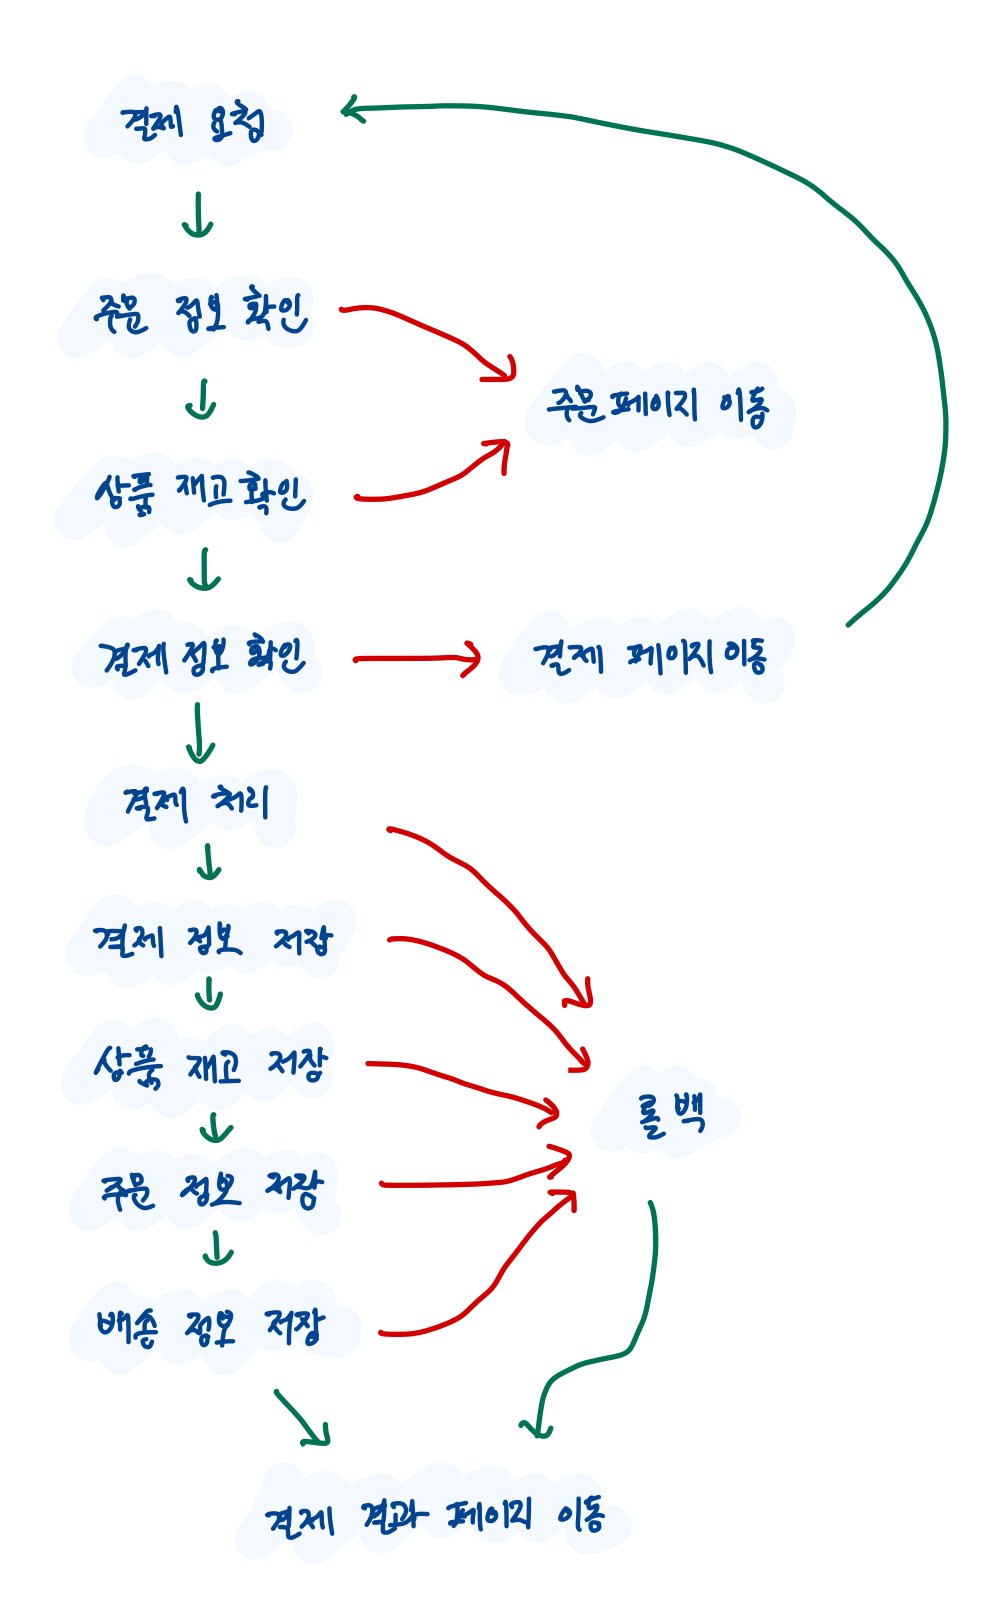 결제 요청
주문 정보 확인
주문 페이지 이동
상품 재고 확인
결제 정보 확인
결제 페이지 이동
결제 처리
결제 정보 저장
상품 재고 저장
롤백
주문 정보 저장
배송 정보 저장
결제 결과 페이지 이동